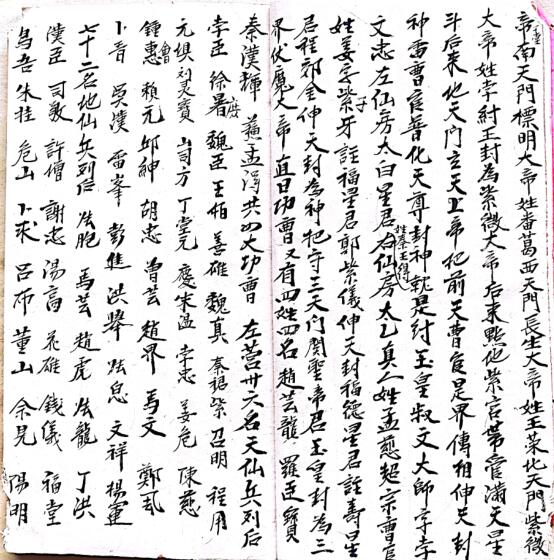 帝南天門標明大帝姓番葛西天門長生大帝王菜化天門紫微
大帝姓李紂王封為紫微大帝后来點他紫宫帶管滿天星
斗后来化天門玄天上帝把前天曹官是界傳相伸天封
神雷曹官普化天尊封神就是紂王皇叔文大師字李
文忠左仙房太白星君右仙房太乙真人姓孟慈超宗曹官
姓姜字紫牙註福星君郭紫儀伸天封福德星君註壽星
君程郊金伸天封為神把守三天门関聖帝君玉皇封為三
界伏魔大帝直日功曹又有四姓四名趙芸龍羅臣
秦漢輝蘓孟淂共四大功曹 左营卅六名天仙兵列后
李臣 徐署 魏臣 王伯 姜雄 魏真 秦禄 柴召明 程用
元㥬 刘文寳 山司方 丁堂元 慶宋温 李忠 姜危 陳慈
鍾惠 賴元 邱紳 胡忠 曽芸 趙界 馬文 鄭
卜音 吳漢 雷峯 彭進 洪舉 炫息 文祥 楊運
七十二名地仙兵列后 炫胞 馬芸 趙虎 炫龍 丁洪
漢臣 司敬 許增 謝忠 湯高 花雄 錢儀 福堂
烏吾 朱桂 危山 卜求 吕布 董山 余見 陽明